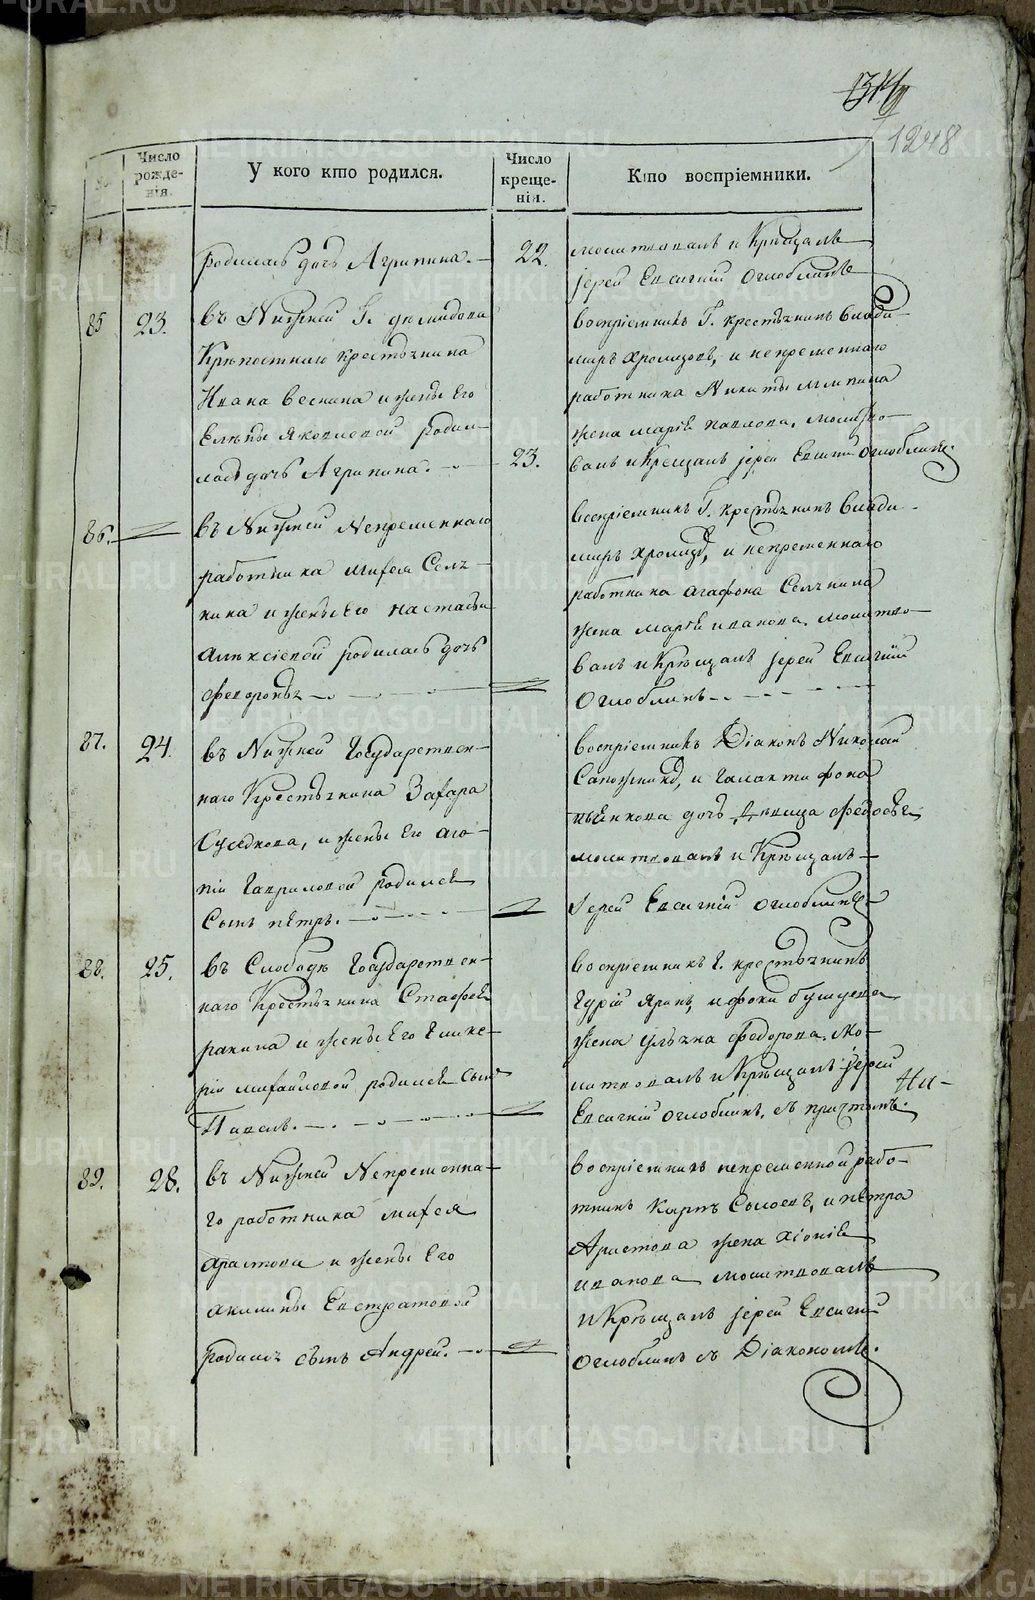 1248
№
Число рожде-нія.
У кого кто родился.
Число креще-нія.
Кто воспріемники.
родилась дочь Агрипина.
22.
молитвовалъ и Крѣщалъ
іерей Евсигній Оглоблинъ
85
23.
въ Нижней Г. демидова
Крѣпостнаго крестьянина
Ивана Веснина и жены Его
Елѣны Яковлевой родил-
лась дочь Агрипина.
23.
воспріемникъ Г. крестьянинъ Влади-
миръ Хромцовъ, и непременнаго
работника Никиты
жена марія павлова. молитво-
валъ и Крещалъ іерей Евсигній Оглоблинъ.
86.
въ Нижней Непременнаго
работника михея Сель-
кина и жены Его настасьи
Алексіевой родилась дочь
Ѳедоровъ
воспріемникъ Г. крестьянинъ Влади-
миръ Хромцовъ, и непременнаго
работника агафона Селькина
жена марія иванова. молитво-
валъ и Крѣщалъ іерей Евсигній
Оглоблинъ.
87.
24.
въ Нижней Государствен-
наго Крестьянина Захара
Суседкова, и жены Его ага-
піи Гавриловой родился
Сынъ пѣтръ.
воспріемникъ Діаконъ Николай
Сапожниковъ, и Галактифона
дочь дѣвица Ѳедосья
молитвовалъ и Крѣщалъ
Іерей Евсигній Оглоблинъ
88.
25.
въ Слободѣ Государствен-
наго Крестьянина Стафея
ракина и жены Его Глике-
ріи михайловой родился Сынъ
Павелъ.
воспріемникъ Г. крестьянинъ
Гурій Яринъ, и фоки бушуева
жена ульяна Ѳедорова. Мо-
литвовалъ и Крѣщалъ іерей
Евсигній Оглоблинъ, съ причтомъ.
89.
28.
въ Нижней Непременна-
го работника михея
Арастова и жены Его
акилины Евстратовой
родилъ сынъ Андрей.
воспріемникъ непременной рабо-
тникъ Карпъ Сысоевъ, и пѣтра
Арастова жена хіонія
иванова молитвовалъ
и Крѣщалъ іерей Евсигній
Оглоблинъ съ Діакономъ.
METRIKI.GASO-URAL.RU